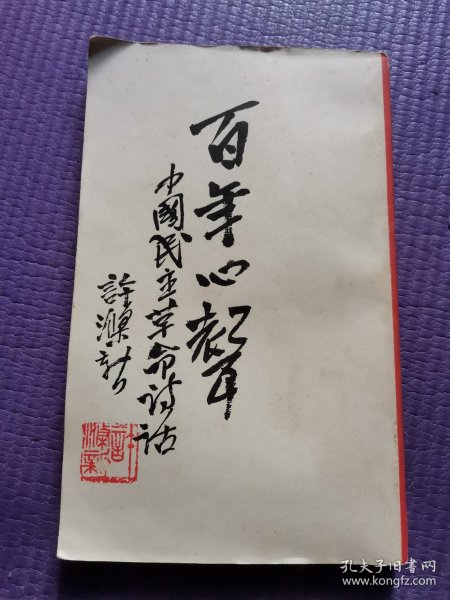 百年心聲
中國民主革命诗话
許滌新
許滌新
孔夫子旧书网
www.kongfz.com